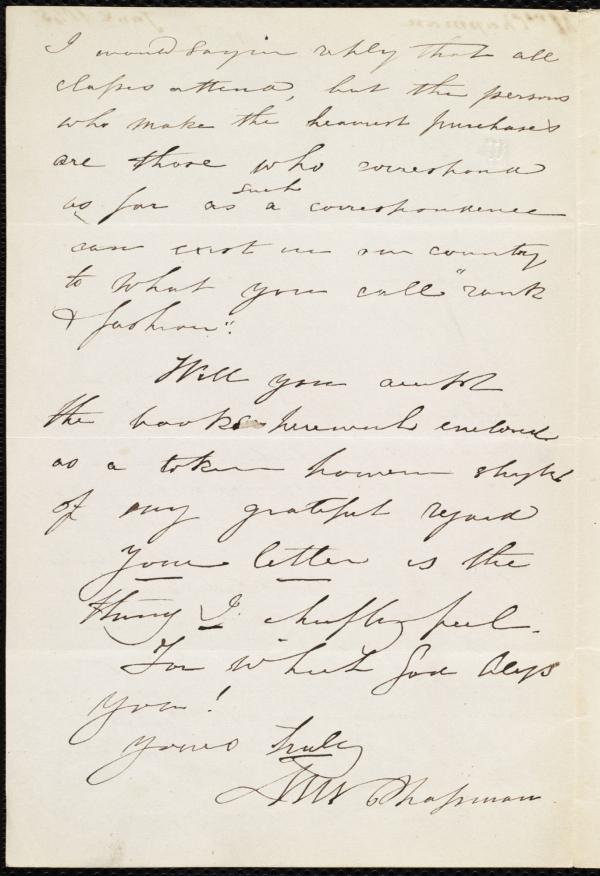 I would say in reply that all
classes attend, but the persons
who make the heaviest purchases
are those who correspond
as far as such a correspondence
can exist in our country
to what you call "rank
& fashion".
Will you accept
the books herewith enclosed
as a token however slight
of my grateful regard
Your letter is the
thing I chiefly feel.
For which God bless
you!
yours truly
M W Chapman